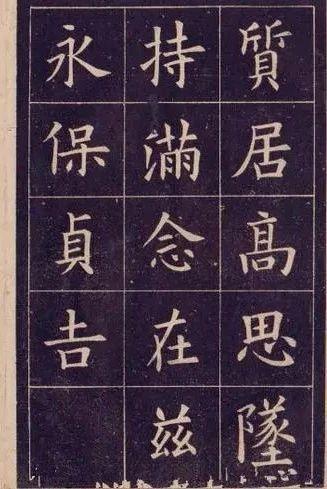 質居髙思墜
持滿念在兹
永保貞吉